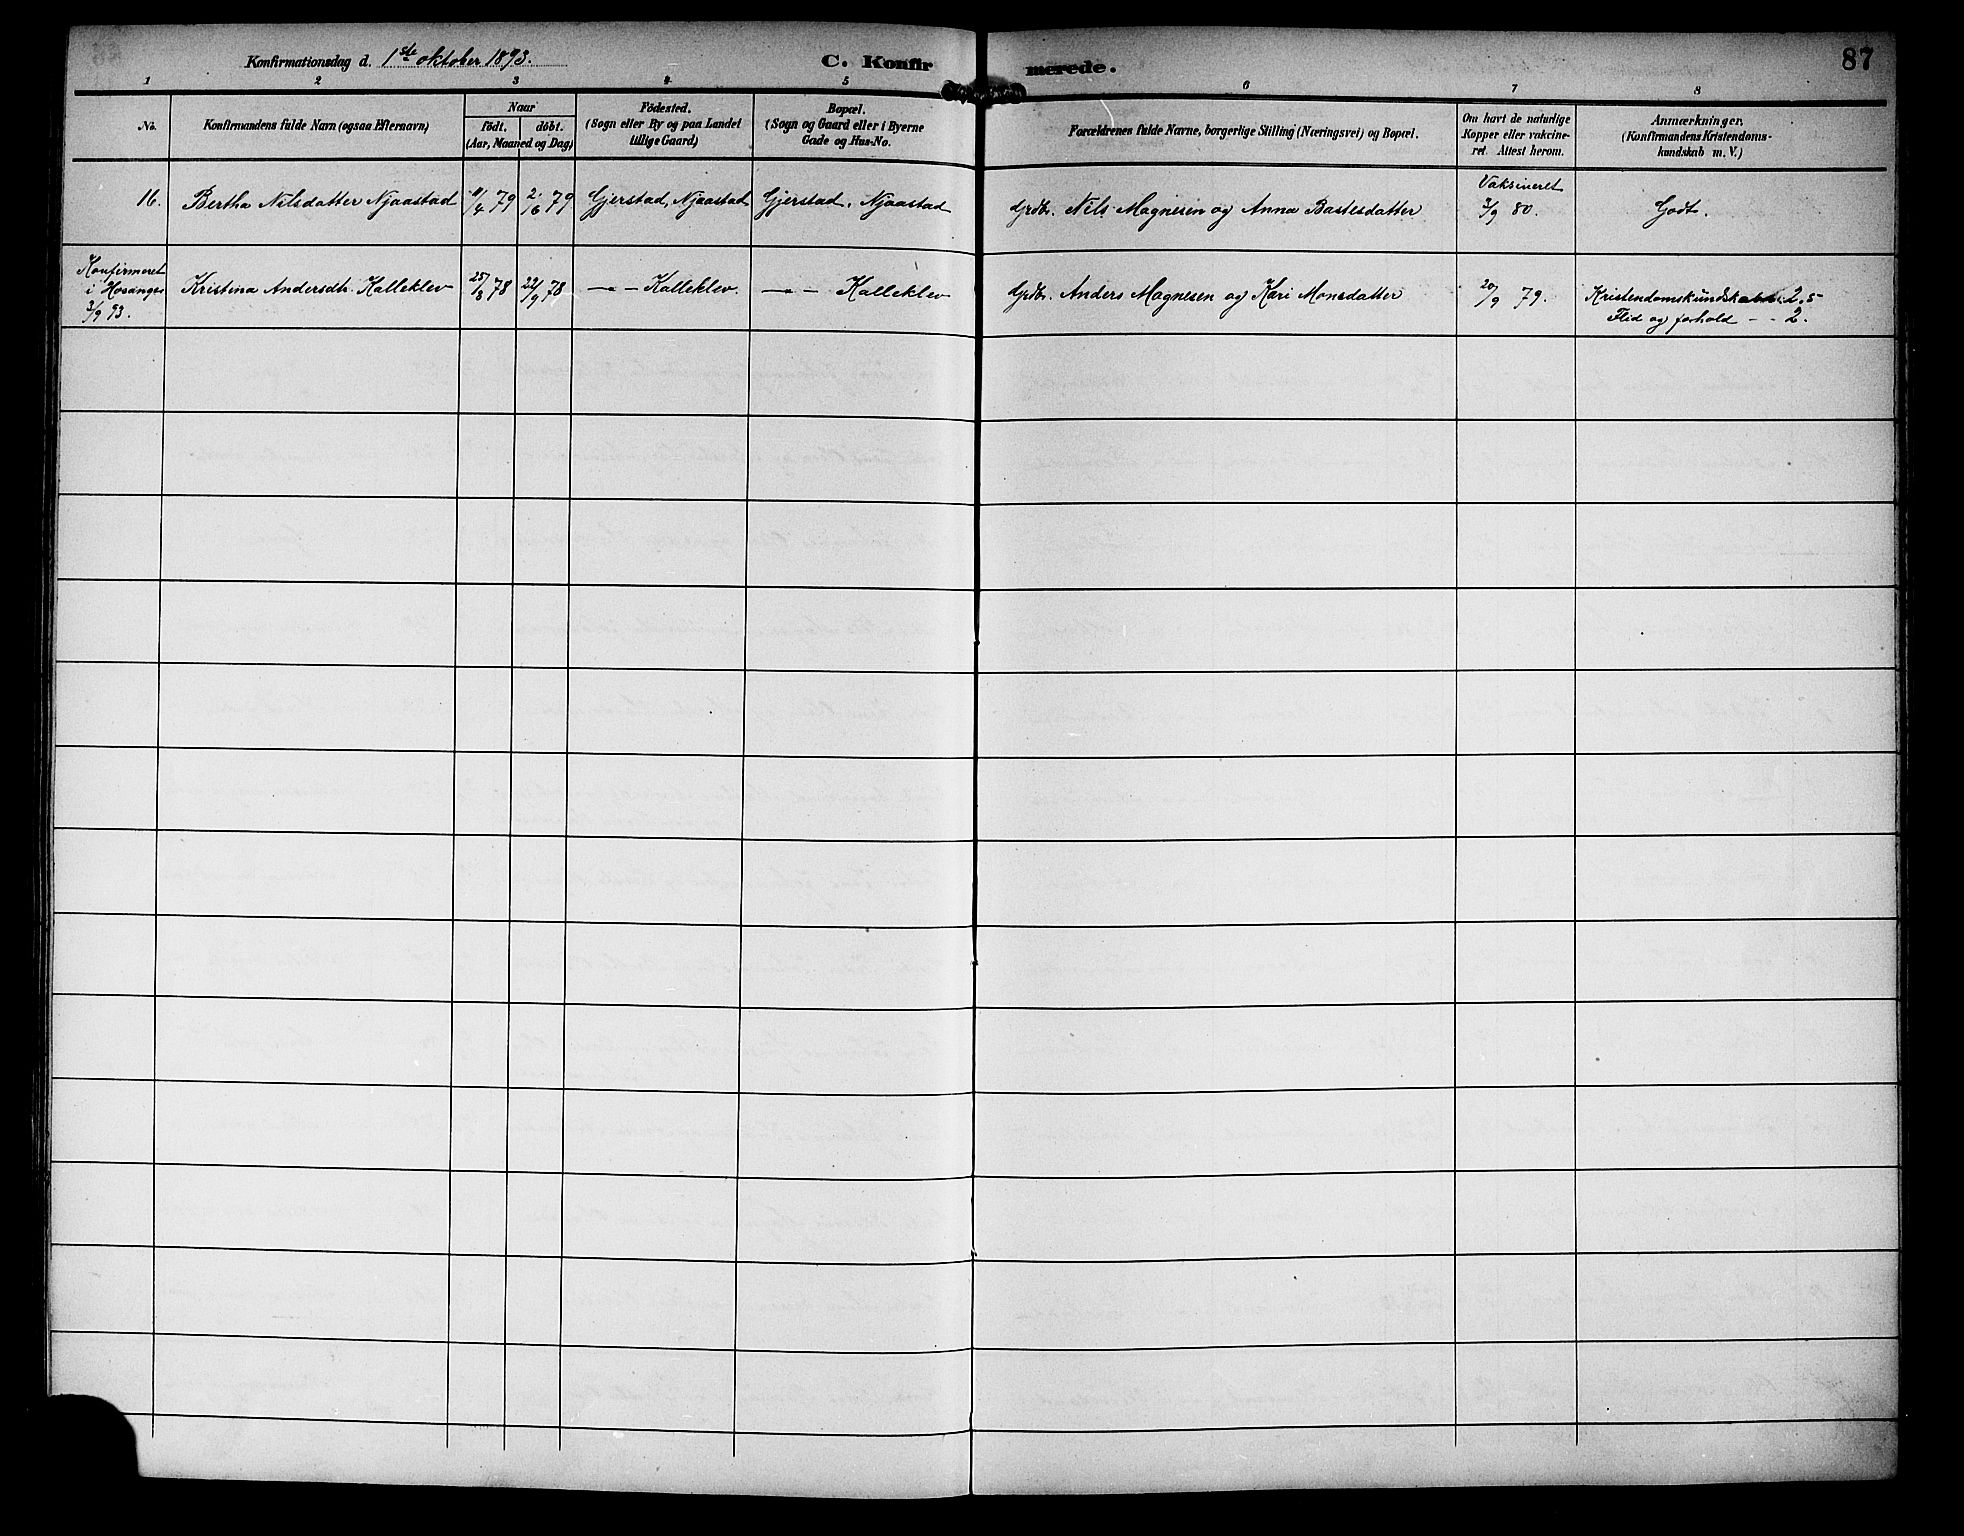 Konfirmationsdag d. 1ste oktober 1893.
C. Konfirmerede.
87
1 2 3 4 5 6 7 8
No.
Konfirmandens fulde Navn (ogsaa Efternavn)
Naar
födt. döbt.
(Aar, Maaned og Dag)
Födested.
(Sogn eller By og paa Landet
tillige Gaard)
Bopæl.
(Sogn og Gaard eller i Byerne
Gade og Hus-No.
Forældrenes fulde Navne, borgerlige Stilling (Næringsvei) og Bopæl.
Om havt de naturlige
Kopper eller vakcine-
ret. Attest herom.
Anmærkninger,
(Konfirmandens Kristendoms-
kundskab m. V.)
16. Bertha Nilsdatter Njaastad 11/4 79 2/6 79 Gjerstad, Njaastad Gjerstad, Njaastad Grdbr. Nils Magnesen og Anna Bastesdatter Vaksineret 3/9 80. Godt.
Konfirmeret
i Hosanger
3/9 93.
Kristina Andersdtr. Kalleklev 25/8 78 22/9 78 — " — Kalleklev. — " — Kalleklev Grdbr. Anders Magnesen og Kari Monsdatter 20/9 79. Kristendomskundskab: 2.5
Flid og forhold - - 2.